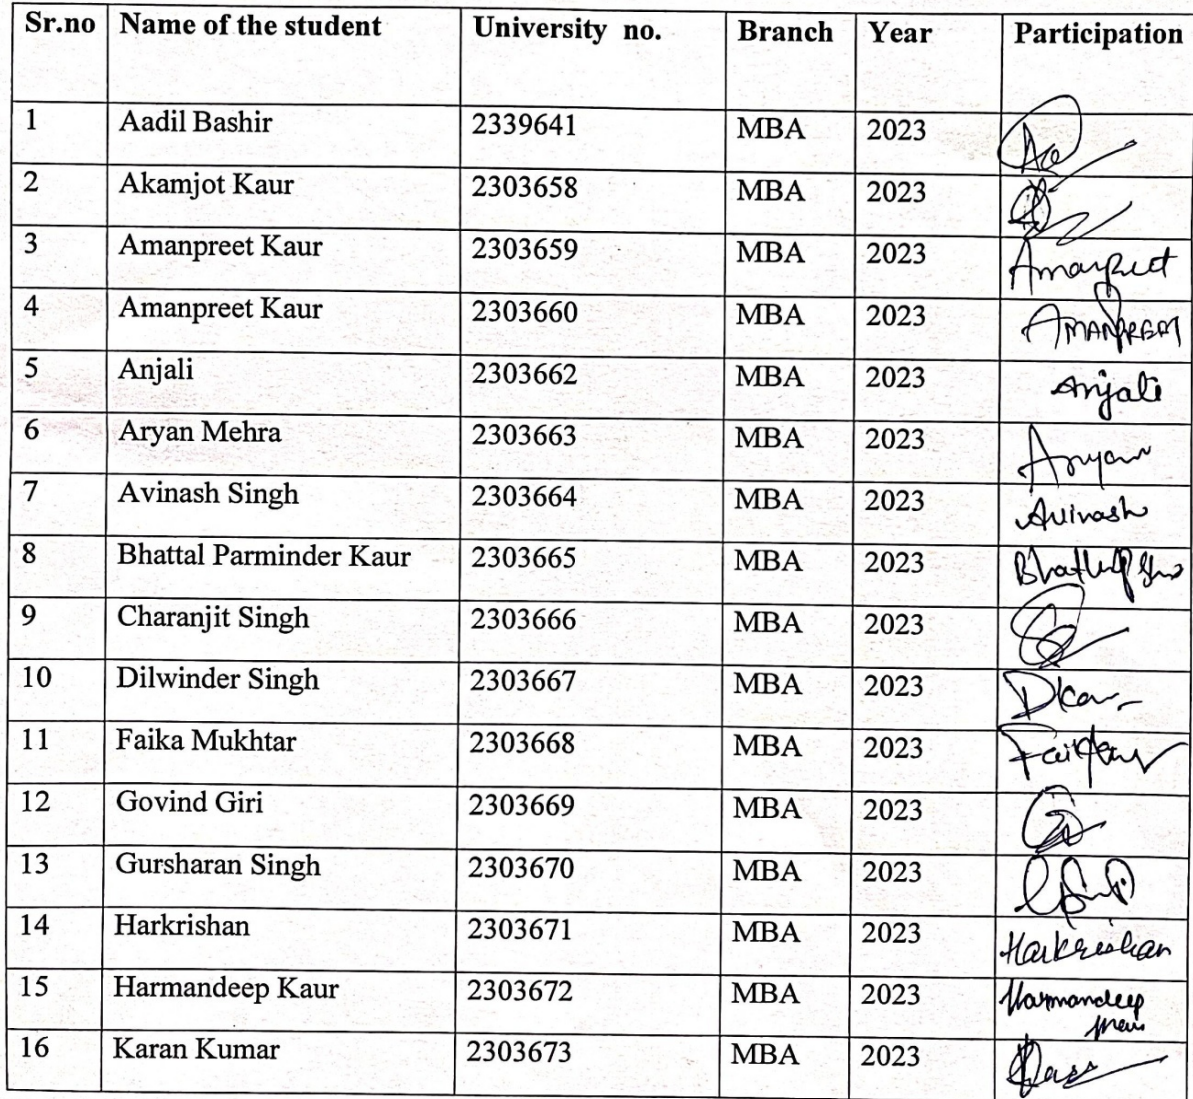 Sr.no Name of the student University no. Branch Year Participation
1 Aadil Bashir 2339641 MBA 2023
2 Akamjot Kaur 2303658 MBA 2023
3 Amanpreet Kaur 2303659 MBA 2023 Amanpreet
4 Amanpreet Kaur 2303660 MBA 2023 AMANPREET
5 Anjali 2303662 MBA 2023 Anjali
6 Aryan Mehra 2303663 MBA 2023 Aryan
7 Avinash Singh 2303664 MBA 2023 Avinash
8 Bhattal Parminder Kaur 2303665 MBA 2023
9 Charanjit Singh 2303666 MBA 2023
10 Dilwinder Singh 2303667 MBA 2023
11 Faika Mukhtar 2303668 MBA 2023
12 Govind Giri 2303669 MBA 2023
13 Gursharan Singh 2303670 MBA 2023
14 Harkrishan 2303671 MBA 2023 Harkrishan
15 Harmandeep Kaur 2303672 MBA 2023 Harmandeep
16 Karan Kumar 2303673 MBA 2023